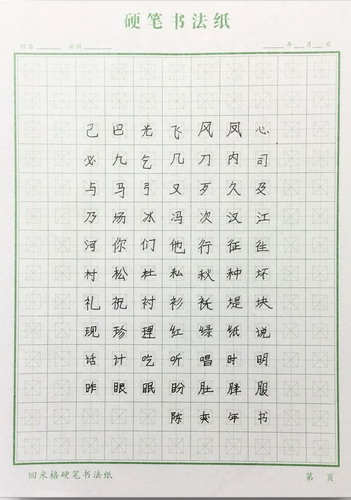 硬笔书法纸
姓名 班级 年 月 日
己巴光飞风凤心
必九乞几刀内司
与马弓又歹久及
乃场冰冯次汉江
河你们他行征往
村松杜私秋种坏
礼祝衬衫祆堤块
现珍理红绿纸说
话计吃听唱时明
昨眼眠盼肚胖服
陈奕年书
回米格硬笔书法纸
第 页